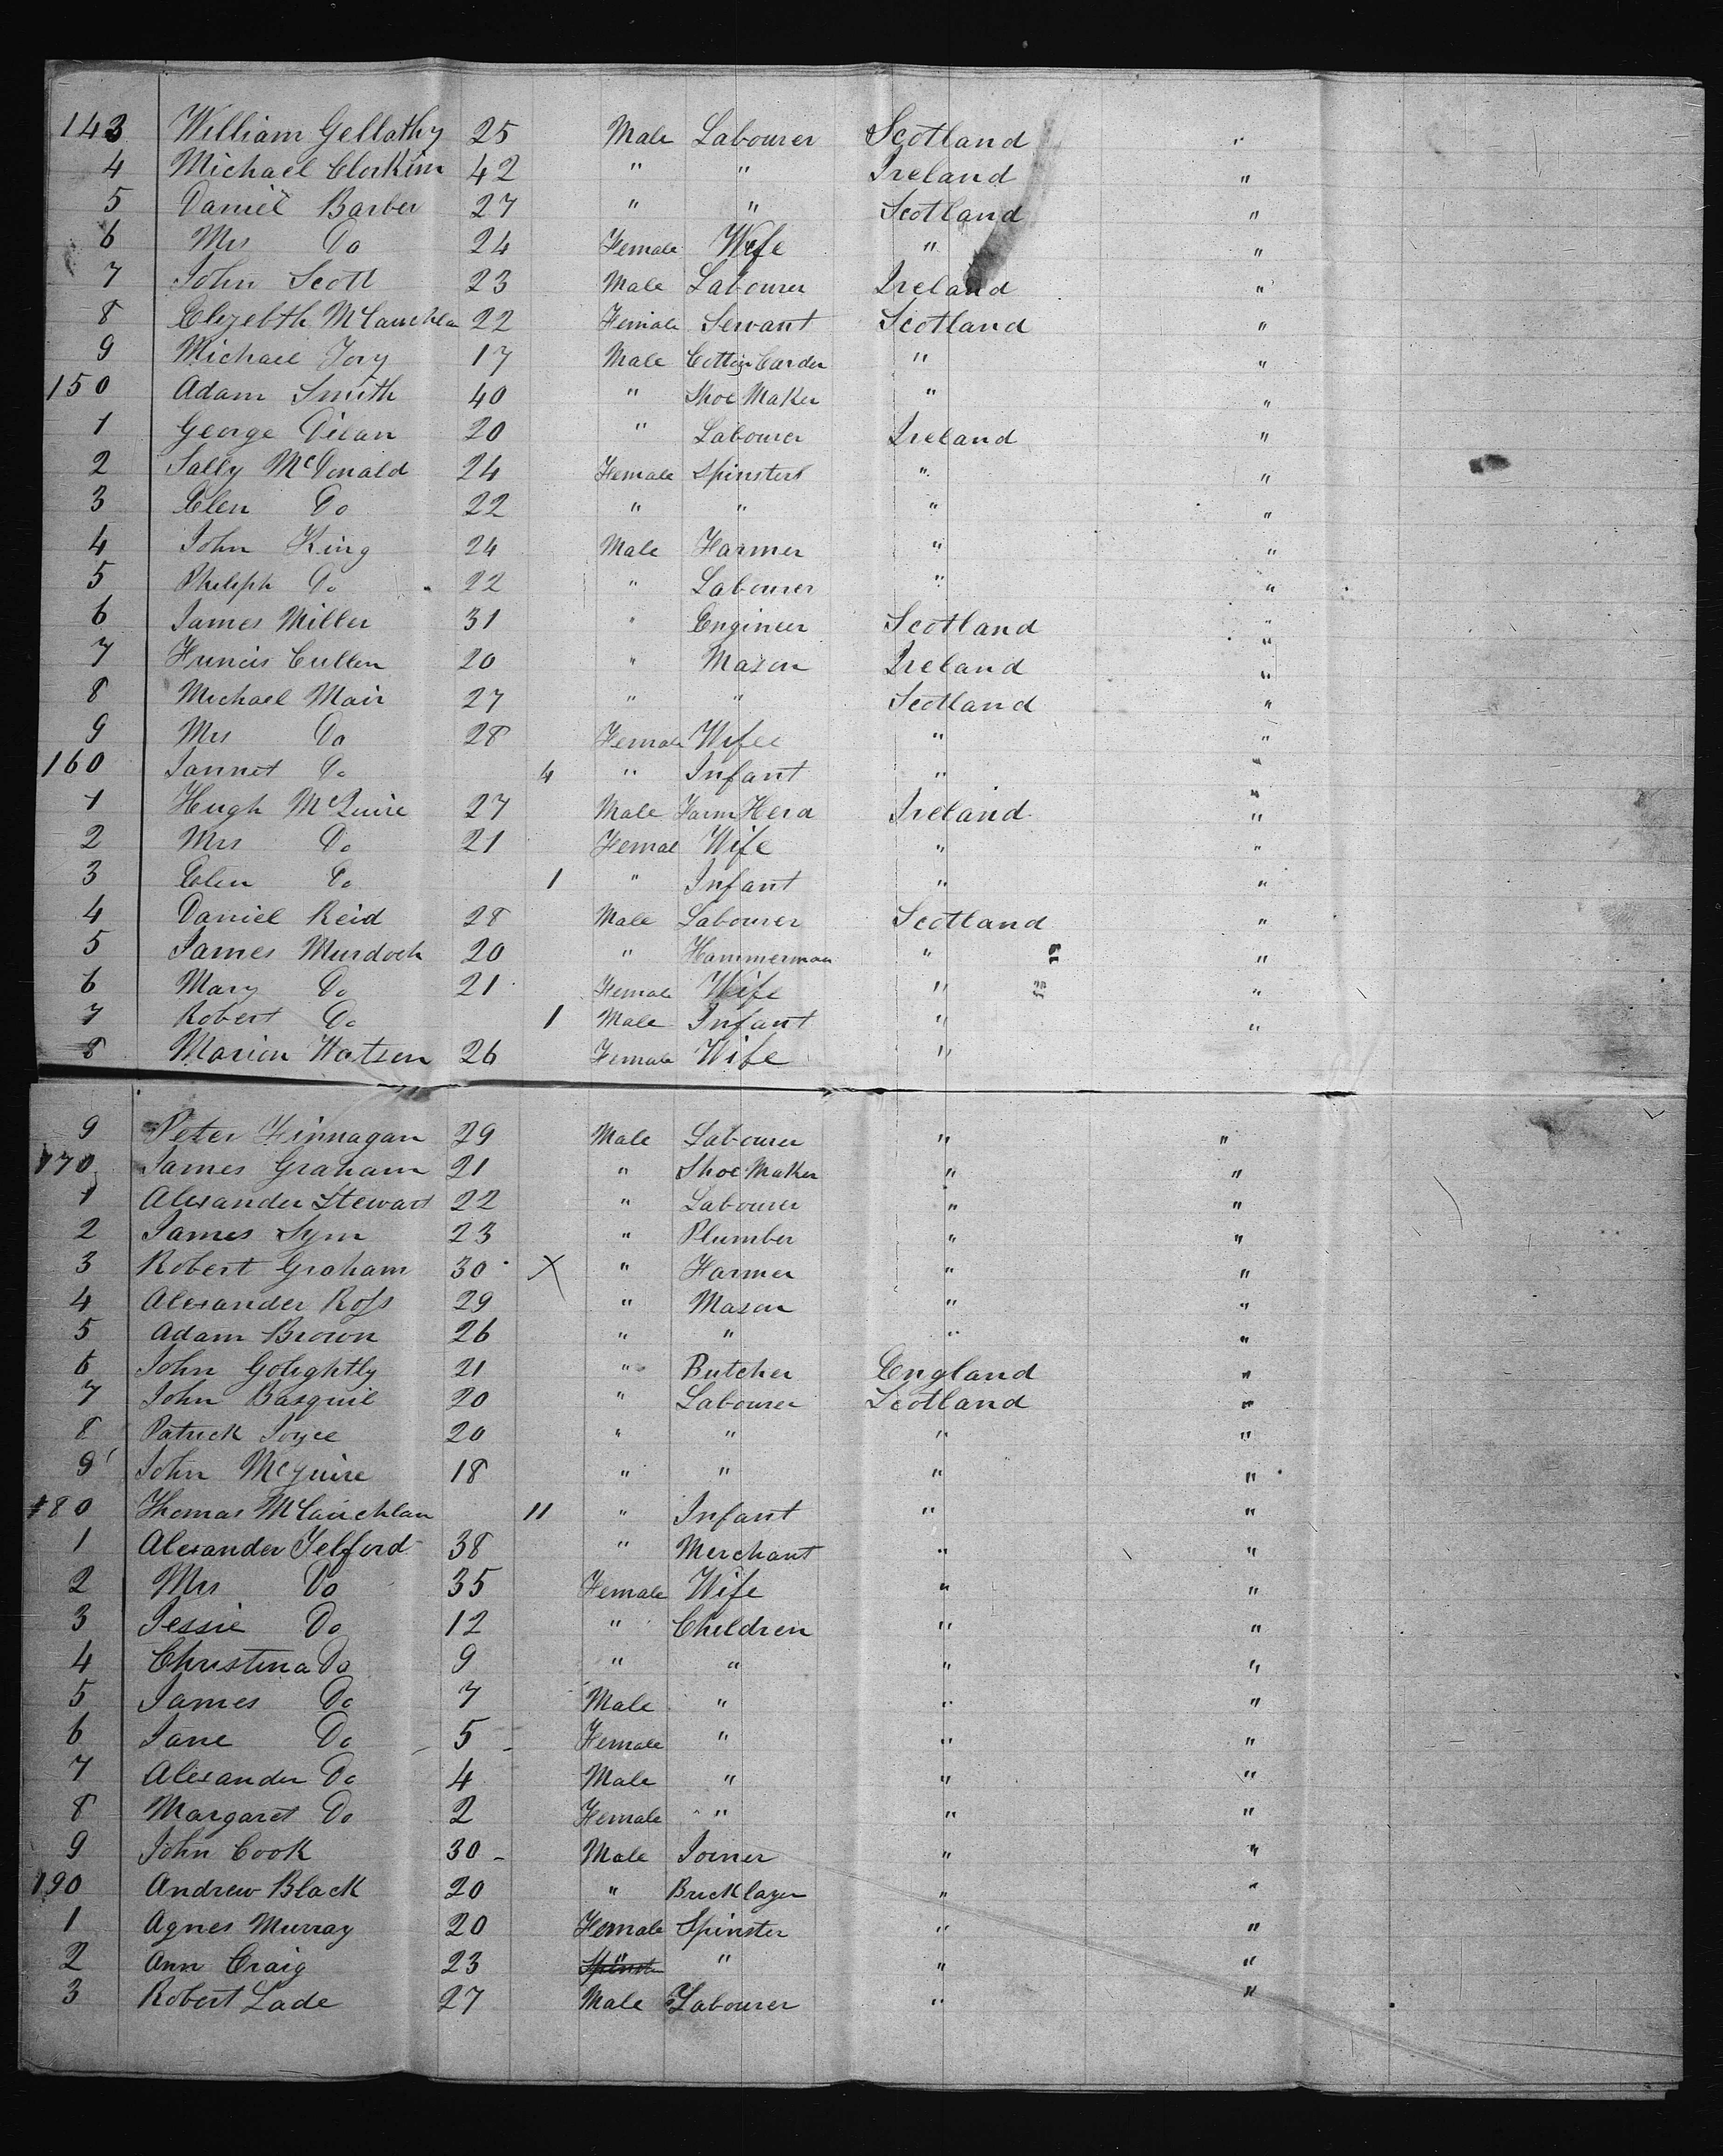 143 William Gellathy 25 Male Labourer Scotland "
4 Michael Clorkin 42 " " Ireland "
5 Daniel Barber 27 " " Scotland "
6 Mrs Do 24 Female Wife " "
7 John Scott 23 Male Labourer Ireland "
8 Elizebth McLauchlan 22 Female Servant Scotland "
9 Michael Jory 17 Male Cotton Carder " "
150 Adam Smith 40 " Shoe Maker " "
1 George Dilan 20 " Labourer Ireland "
2 Sally McDonald 24 Female Spinsters " "
3 Elen Do 22 " " " "
4 John King 24 Male Farmer " "
5 Philiph Do 22 " Labourer " "
6 James Miller 31 " Engineer Scotland "
7 Francis Cullen 20 " Mason Ireland "
8 Michael Mair 27 " " Scotland "
9 Mrs Do 28 Female Wife " "
160 Jannet Do 4 " Infant " "
1 Hugh McQuire 27 Male Farm Herd Ireland "
2 Mrs Do 21 Femal Wife " "
3 Elen Do 1 " Infant " "
4 Daniel Reid 28 Male Labourer Scotland "
5 James Murdoch 20 " Hammerman " "
6 Mary Do 21 Female Wife " "
7 Robert Do 1 Male Infant " "
8 Marion Watson 26 Female Wife "
9 Peter Finnagan 29 Male Labourer " "
170 James Graham 21 " Shoe Maker " "
1 Alexander Stewart 22 " Labourer " "
2 James Sym 23 " Plumber " "
3 Robert Graham 30 X " Farmer " "
4 Alexander Ross 29 " Mason " "
5 Adam Brown 26 " " " "
6 John Golightly 21 " Butcher England "
7 John Basquil 20 " Labourer Scotland "
8 Patrick Joyce 20 " " " "
9 John McGuire 18 " " " "
180 Thomas McLauchlan 11 " Infant " "
1 Alexander Telford 38 " Merchant " "
2 Mrs Do 35 Female Wife " "
3 Jessie Do 12 " Children " "
4 Christina Do 9 " " " "
5 James Do 7 Male " " "
6 Jane Do 5 Female " " "
7 Alexander Do 4 Male " " "
8 Margaret Do 2 Female " " "
9 John Cook 30 Male Joiner " "
190 Andrew Black 20 " Bricklayer " "
1 Agnes Murray 20 Female Spinster " "
2 Ann Craig 23 " " " "
3 Robert Lade 27 Male Labourer " "